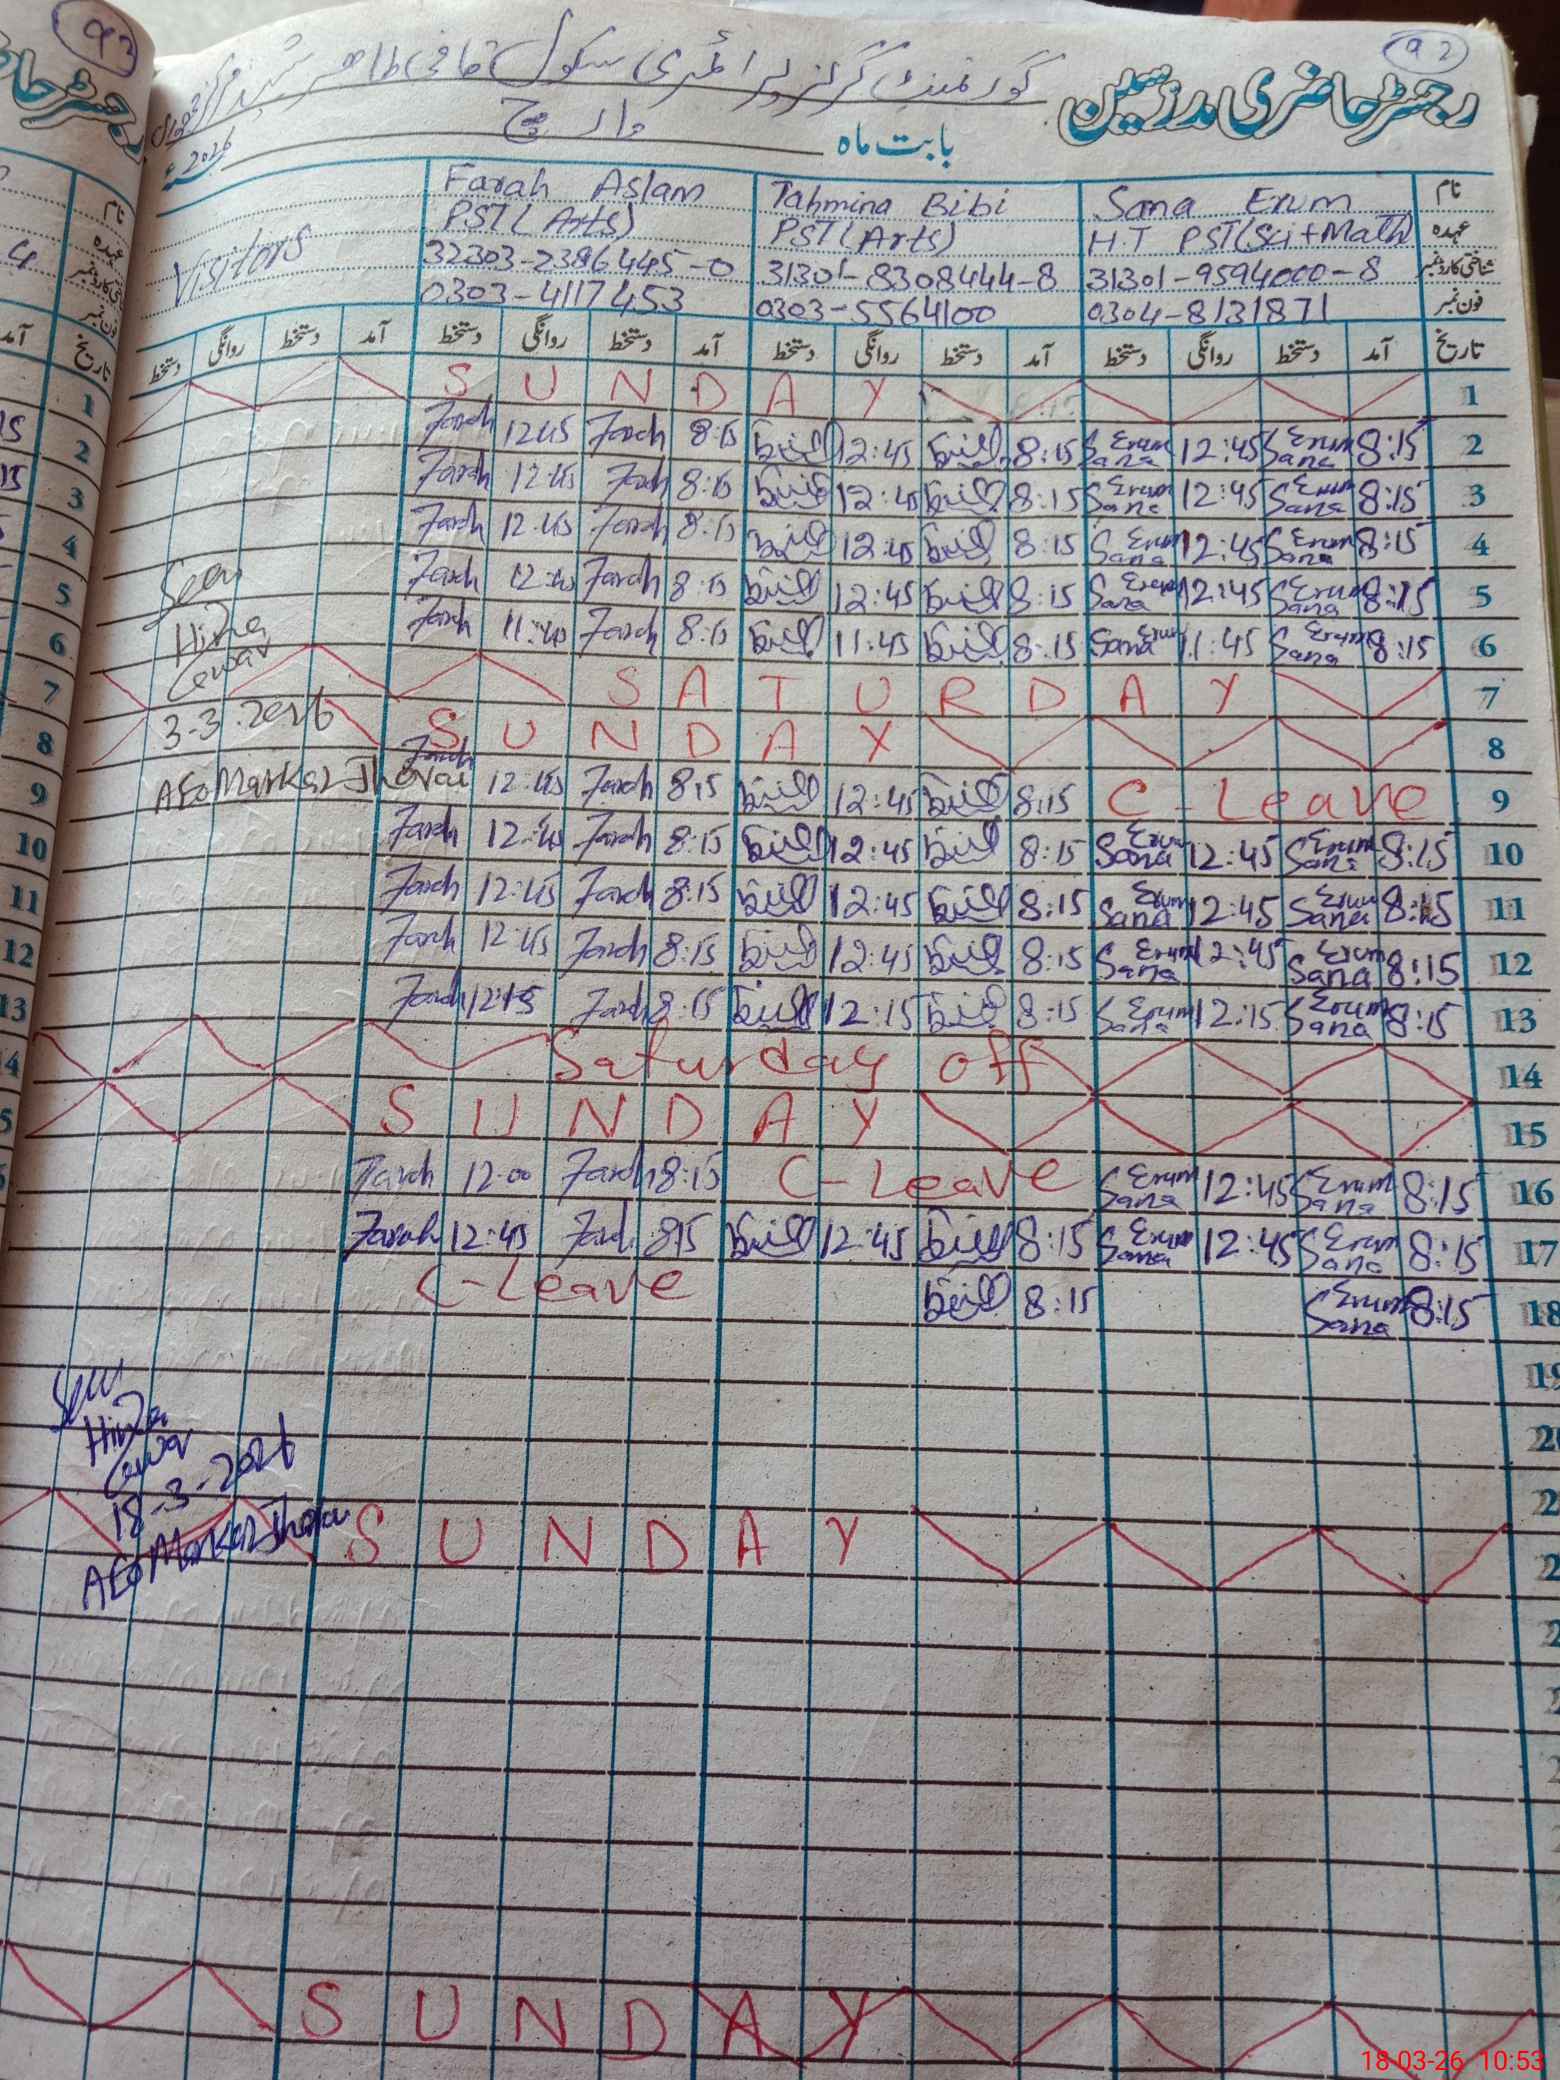 92
رجسٹر حاضری مدرسین
گورنمنٹ گرلز پرائمری سکول
بابت ماہ مارچ
2026ء
نام Sana Erum Tahmina Bibi Farah Aslam
عہدہ H.T PST(Sci+Math) PST(Arts) PST(Arts)
شناختی کارڈ نمبر 31301-9594000-8 31301-8308444-8 32303-2386445-0
فون نمبر 0304-8131871 0303-5564100 0303-4117453
Visitors
تاریخ آمد دستخط روانگی دستخط آمد دستخط روانگی دستخط آمد دستخط روانگی دستخط آمد دستخط روانگی دستخط
1 S U N D A Y
2 8:15 Sana Erum 12:45 Sana Erum 8:15 12:45 8:15 Farah 12:45 Farah
3 8:15 Sana Erum 12:45 Sana Erum 8:15 12:45 8:15 Farah 12:45 Farah
4 8:15 Sana Erum 12:45 Sana Erum 8:15 12:45 8:15 Farah 12:45 Farah
5 8:15 Sana Erum 12:45 Sana Erum 8:15 12:45 8:15 Farah 12:45 Farah
6 8:15 Sana Erum 11:45 Sana Erum 8:15 11:45 8:15 Farah 11:45 Farah
7 S A T U R D A Y
8 S U N D A Y
9 C-Leave 8:15 12:45 8:15 Farah 12:45 Farah
10 8:15 Sana Erum 12:45 Sana Erum 8:15 12:45 8:15 Farah 12:45 Farah
11 8:15 Sana Erum 12:45 Sana Erum 8:15 12:45 8:15 Farah 12:45 Farah
12 8:15 Sana Erum 12:45 Sana Erum 8:15 12:45 8:15 Farah 12:45 Farah
13 8:15 Sana Erum 12:15 Sana Erum 8:15 12:15 8:15 Farah 12:15 Farah
14 Saturday off
15 S U N D A Y
16 8:15 Sana Erum 12:45 Sana Erum C-Leave 8:15 Farah 12:00 Farah
17 8:15 Sana Erum 12:45 Sana Erum 8:15 12:45 815 Farah 12:45 Farah
18 8:15 Sana Erum 8:15 C-Leave
19
20
S U N D A Y
S U N D A Y
Seen
3-3-2026
AEO Markaz Jhorai
Seen
18-3-2026
AEO Markaz Jhorai
18-03-26 10:53